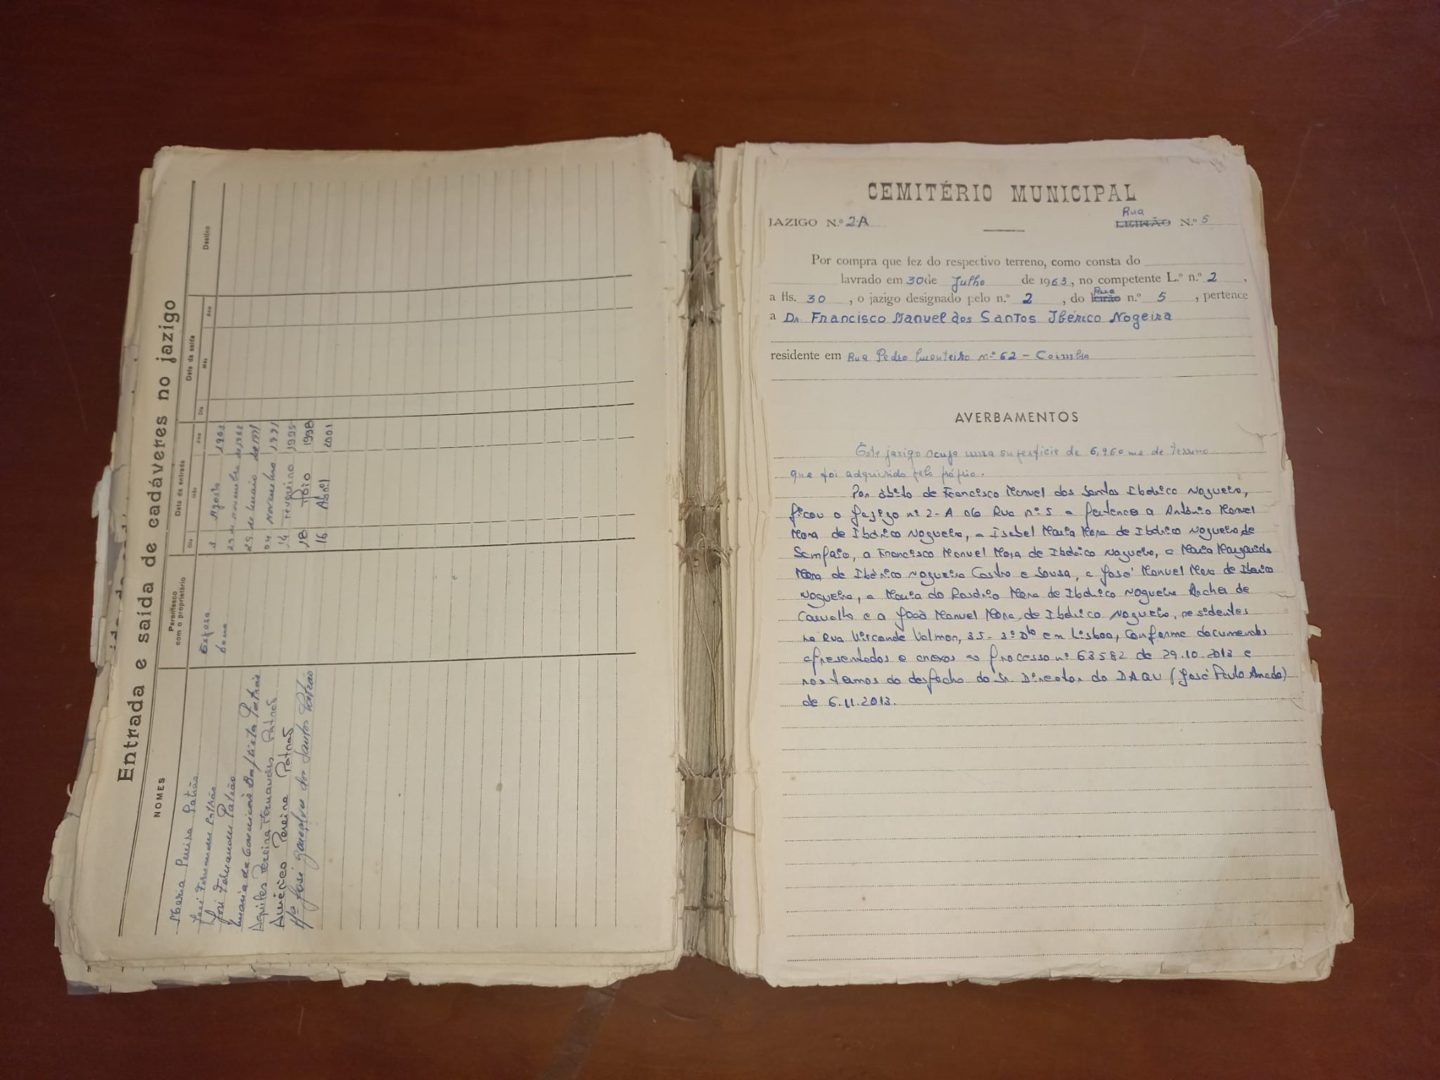 Entrada e saída de cadáveres no jazigo
NOMES
Parentesco com o proprietário
Data da entrada
Dia Mês Ano
Data da saída
Dia Mês Ano
Destino
Maria Pereira Patrão Esposa Agosto
José Fernandes Patrão 23 de novembro de
José Fernandes Patrão de
Maria da Conceição Baptista Patrão 04 Novembro 1991
Aquiles Pereira Fernandes Patrão 14 Fevereiro 1995
Américo Pereira Patrão 18 Maio 1998
Mª José Gonçalves dos Santos Patrão 16 Abril 2001
CEMITÉRIO MUNICIPAL
JAZIGO N.º 2-A Rua LEIRÃO N.º 5
Por compra que fez do respectivo terreno, como consta do
lavrado em 30 de Julho de 1963, no competente L.º n.º 2,
a fls. 30, o jazigo designado pelo n.º 2, do leirão Rua n.º 5, pertence
a Dr. Francisco Manuel dos Santos Ibérico Nogeira
residente em Rua Pedro Monteiro nº 62 - Coimbra
AVERBAMENTOS
Este jazigo ocupa uma superfície de 6,960 m2 de terreno
que foi adquirido pelo próprio.
Por óbito de Francisco Manuel dos Santos Ibérico Nogueira,
ficou o jazigo nº 2-A da Rua nº 5 a pertencer a António Manuel
Mora de Ibérico Nogueira, a Isabel Maria Mora de Ibérico Nogueira de
Sampaio, a Francisco Manuel Mora de Ibérico Nogueira, a Maria Margarida
Mora de Ibérico Nogueira Castro e Sousa, a José Manuel Mora de Ibérico
Nogueira, a Maria do Rosário Mora de Ibérico Nogueira Archer de
Carvalho e a João Manuel Mora de Ibérico Nogueira, residentes
na Rua Visconde Valmor, 35 - 3º Dtº em Lisboa, conforme documentos
apresentados e anexos ao processo nº 63582 de 29.10.2013 e
nos termos do despacho do Sr. Director do DAQV (José Paulo Amado)
de 6.11.2013.